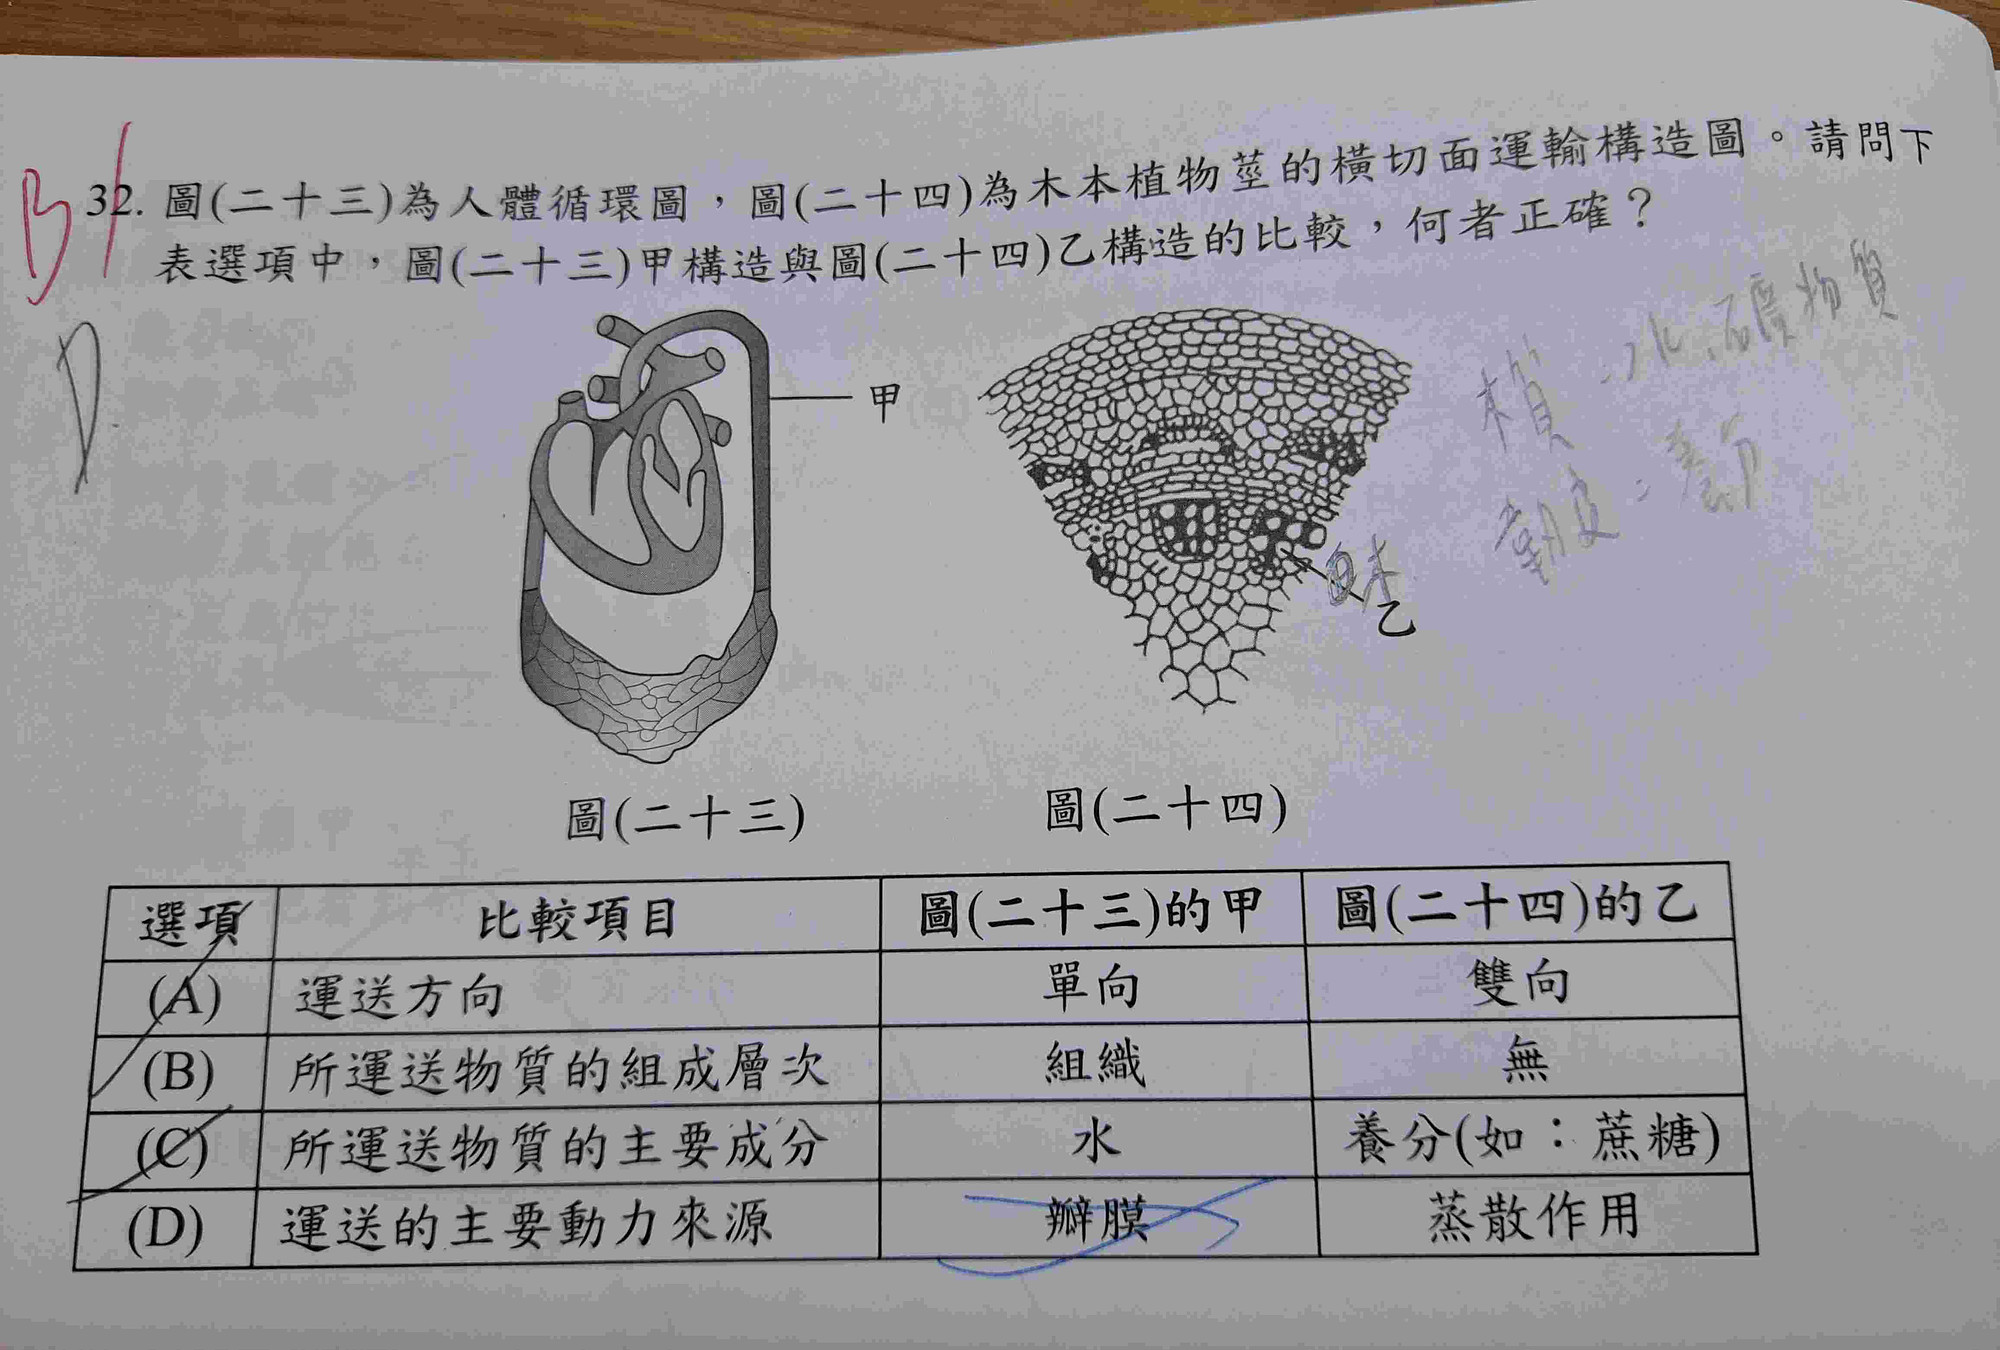 B
32. 圖(二十三)為人體循環圖，圖(二十四)為木本植物莖的橫切面運輸構造圖。請問下
表選項中，圖(二十三)甲構造與圖(二十四)乙構造的比較，何者正確？
D
甲
水、礦物質
韌皮：養分
乙
圖(二十三)
圖(二十四)
選項 比較項目 圖(二十三)的甲 圖(二十四)的乙
(A) 運送方向 單向 雙向
(B) 所運送物質的組成層次 組織 無
(C) 所運送物質的主要成分 水 養分(如：蔗糖)
(D) 運送的主要動力來源 瓣膜 蒸散作用